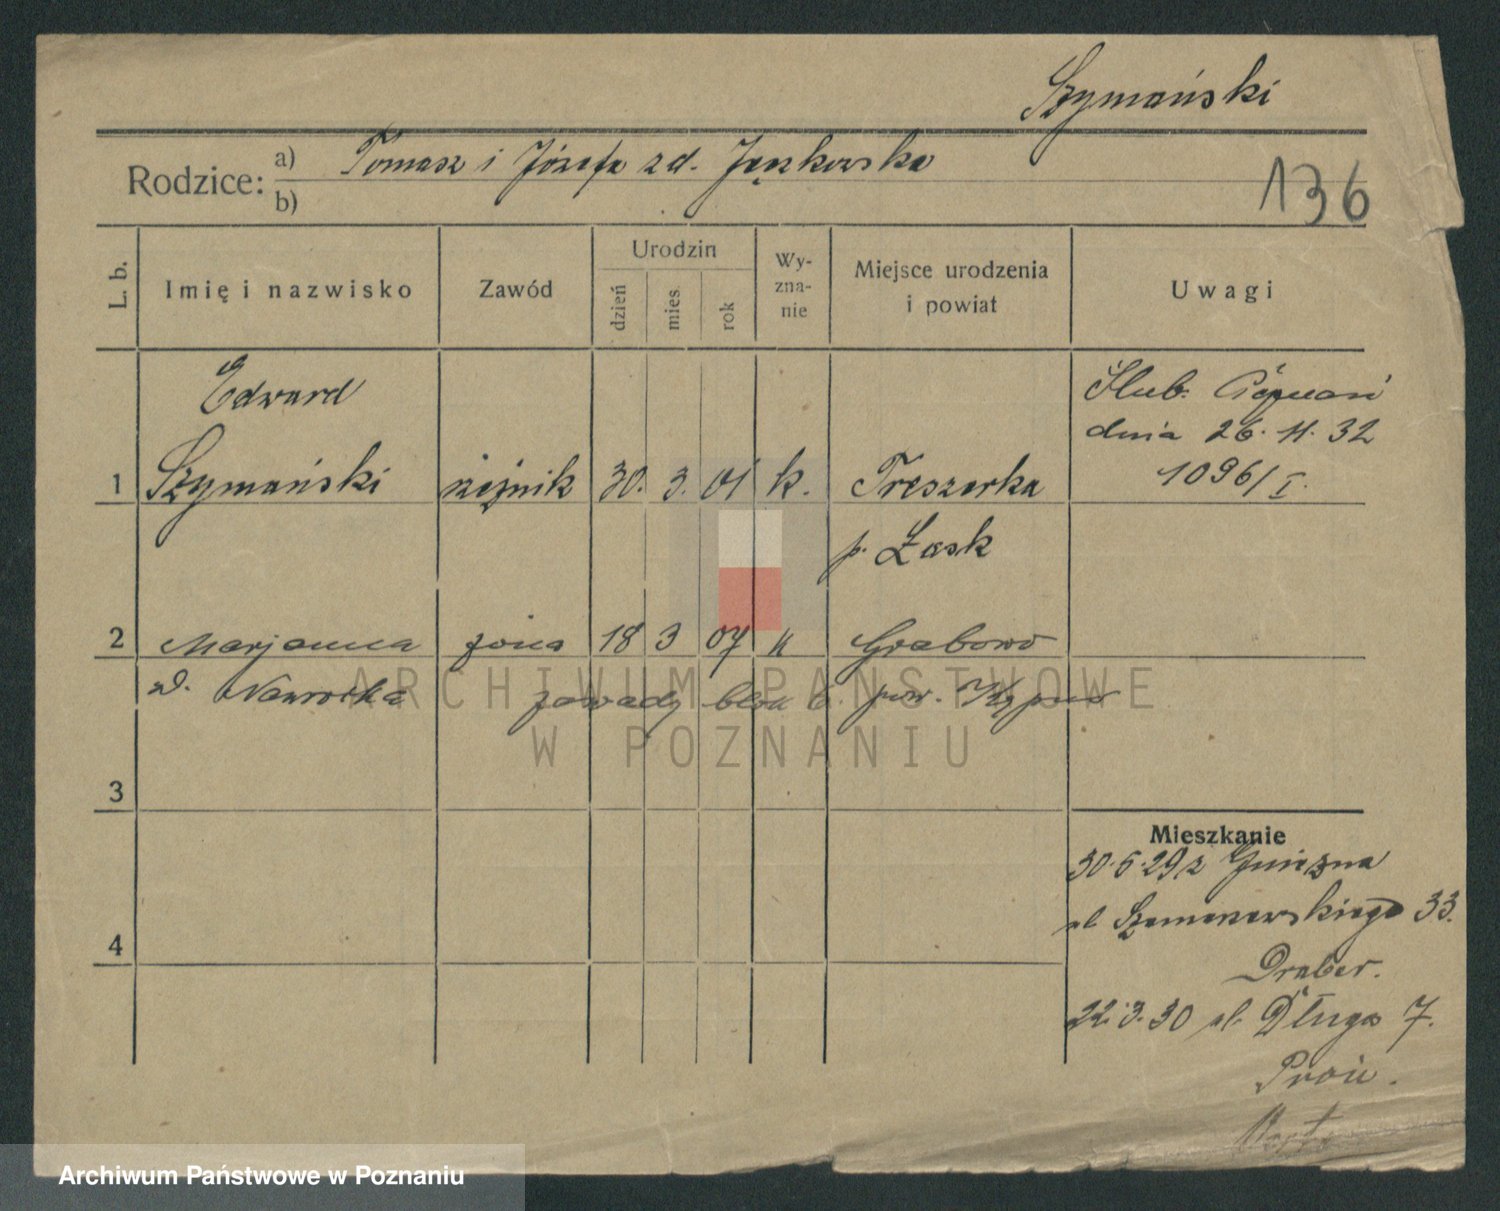 Szymański
Rodzice: a) Tomasz i Józefa zd. Jęczkowska
b)
136
L. b.
Imię i nazwisko
Zawód
Urodzin
dzień
mies.
rok
Wy-
zna-
nie
Miejsce urodzenia
i powiat
Uwagi
Edward
1 Szymański rzeźnik 30. 3. 01 k. Treszorka
p. Łask
Ślub: Poznań
dnia 26. 11. 32
1096/I.
2 Marjanna żona 18 3 07 k Grabowo
d. Nawrocka zawady blok 6. pow. Kępno
3
4
Mieszkanie
30.6.29 z Gniezna
ul Szamarzewskiego 33.
Draber.
22.3.30 ul. Długa 7.
ARCHIWUM PAŃSTWOWE
W POZNANIU
Archiwum Państwowe w Poznaniu